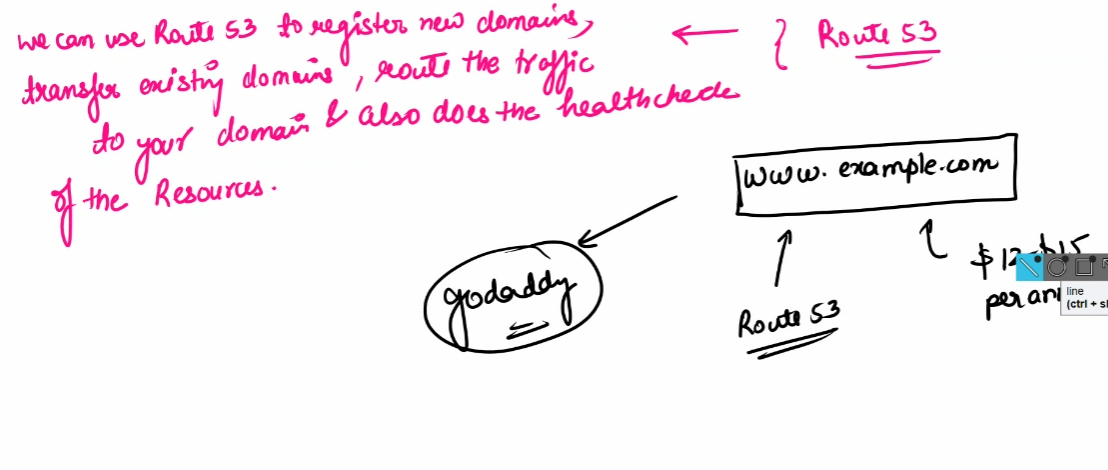 we can use Route 53 to register new domains,
transfer existing domains, route the traffic
to your domain & also does the healthcheck
of the Resources.
} Route 53
www.example.com
godaddy
Route 53
$12-$15
per an
line
(ctrl + s